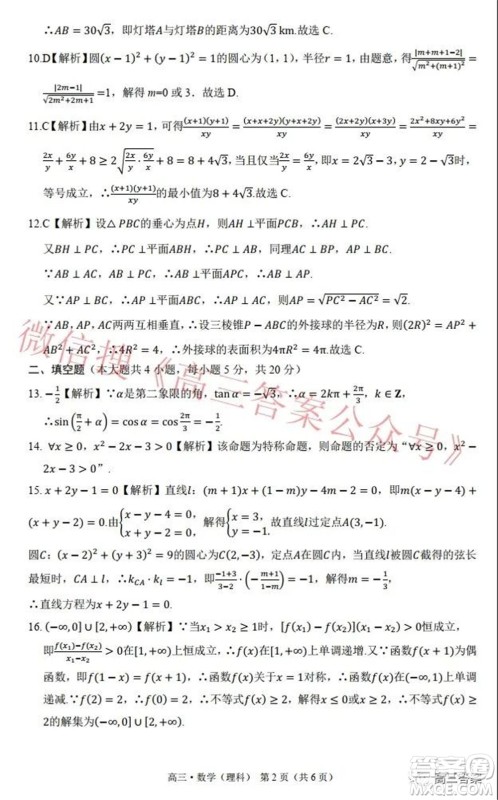 ∴AB = 30√3，即灯塔A与灯塔B的距离为30√3 km.故选 C.
10.D【解析】圆(x − 1)² + (y − 1)² = 1的圆心为(1, 1)，半径r = 1，由题意，得|m+m+1−2|/√(m²+(m+1)²) =
|2m−1|/√(2m²+2m+1) =1，解得 m=0 或 3. 故选 D.
11.C【解析】由x + 2y = 1，可得(x+1)(y+1)/xy = (x+x+2y)(y+x+2y)/xy = (2x+2y)(x+3y)/xy = (2x²+8xy+6y²)/xy =
2x/y + 6y/x + 8 ≥ 2√(2x/y · 6y/x) + 8 = 8 + 4√3，当且仅当2x/y = 6y/x，即x = 2√3 − 3, y = 2 − √3时，
等号成立，∴(x+1)(y+1)/xy的最小值为8 + 4√3.故选 C.
12.C【解析】设△PBC的垂心为点H，则AH ⊥平面PBC，∴AH ⊥ PC.
又BH ⊥ PC，∴PC ⊥平面ABH，∴PC ⊥ AB，同理AC ⊥ BP.
又∵AB ⊥ AC，∴AB ⊥平面APC，∴AB ⊥ AP.
又∵AP ⊥ BC，∴AP ⊥平面ABC，∴AP ⊥ AC，∴AP = √(PC² − AC²) = √2.
又∵AB, AP, AC两两互相垂直，∴设三棱锥P − ABC的外接球的半径为R，则(2R)² = AP² +
AB² + AC²，∴4R² = 4，∴外接球的表面积为4πR² = 4π. 故选 C.
二、填空题（本大题共 4 小题，每小题 5 分，共 20 分）
13. −1/2【解析】∵α是第二象限的角，tanα = −√3，∴α = 2kπ + 2π/3, k ∈ Z,
∴sin(π/2 + α) = cosα = cos 2π/3 = −1/2.
14. ∀x ≥ 0, x² − 2x − 3 > 0【解析】该命题为特称命题，命题的否定为“∀x ≥ 0, x² −
2x − 3 > 0”.
15. x + 2y − 1 = 0【解析】直线l：(m + 1)x + (1 − m)y − 4m − 2 = 0，即m(x − y − 4) +
(x + y − 2) = 0.由{x − y − 4 = 0, x + y − 2 = 0, 解得{x = 3, y = −1. 故直线l过定点A(3, −1).
圆C：(x − 2)² + (y + 3)² = 9的圆心为C(2, −3)，定点A在圆C内，当直线l被圆C截得的弦长
最短时，CA ⊥ l，∴k_CA · k_l = −1，即(−1+3)/(3−2) · (−(m+1)/(1−m)) = −1，解得m = −1/3,
∴直线方程为x + 2y − 1 = 0.
16. (−∞, 0] ∪ [2, +∞)【解析】∵当x₁ > x₂ ≥ 1时，[f(x₁) − f(x₂)](x₁ − x₂) > 0恒成立，
即(f(x₁)−f(x₂))/(x₁−x₂) > 0在[1, +∞)上恒成立，∴f(x)在[1, +∞)上单调递增.又∵f(x + 1)为偶
函数，即f(1 − x) = f(x + 1)，∴函数f(x)的图象关于直线x = 1对称，∴f(x)在(−∞, 1)上单调
递减.∵f(2) = 2，∴f(0) = f(2) = 2，∴不等式f(x) ≥ 2的解集为x ≤ 0或x ≥ 2，∴不等式f(x) ≥
2的解集为(−∞, 0] ∪ [2, +∞).
高三·数学（理科） 第 2 页（共 6 页）
微信搜《高三答案公众号》
高三答案